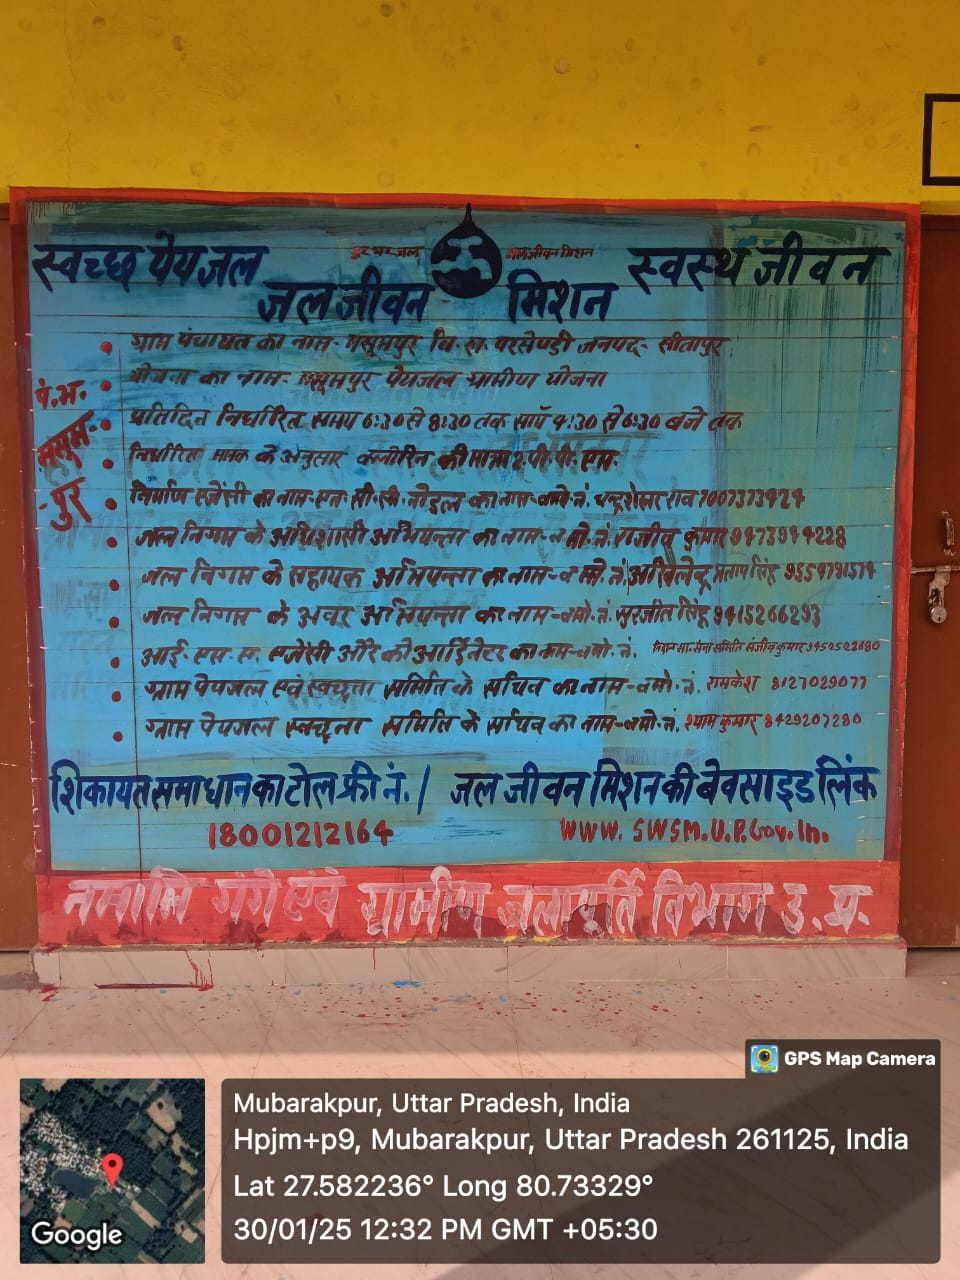 स्वच्छ पेयजल हर घर जल जल जीवन मिशन स्वस्थ जीवन
जल जीवन मिशन
ग्राम पंचायत का नाम- मसूमपुर वि.ख. परसेण्डी जनपद- सीतापुर
योजना का नाम- मसूमपुर पेयजल ग्रामीण योजना
पं.भ.
मसूम-
-पुर
प्रतिदिन निर्धारित समय 6:30 से 8:30 तक सायं 4:30 से 6:30 बजे तक
निर्धारित मानक के अनुसार क्लोरिन की मात्रा 2 पी.पी. एम.
निर्माण एजेंसी का नाम- एन.सी.सी. नोडल का नाम- वमो.नं. चन्द्रशेखर राव 7007373924
जल निगम के अधिशासी अभियन्ता का नाम- व मो.नं. राजीव कुमार 9473944228
जल निगम के सहायक अभियन्ता का नाम- व मो.नं. अखिलेन्द्र प्रताप सिंह 9554791574
जल निगम के अवर अभियन्ता का नाम- वमो.नं. सुरजीत सिंह 9415266293
आई. एस. ए. एजेंसी और कोआर्डिनेटर का नाम- वमो.नं. सेवा समिति संजीव कुमार 9452528680
ग्राम पेयजल एवं स्वच्छता समिति के सचिव का नाम- वमो.नं. रामकेश 8127029077
ग्राम पेयजल स्वच्छता समिति के सचिव का नाम- वमो.नं. श्याम कुमार 8429207280
शिकायत समाधान का टोल फ्री नं. / जल जीवन मिशन की बेवसाइड लिंक
18001212164 WWW. SWSM.U.P.Gov.In.
नमामि गंगे एंवं ग्रामीण जलापूर्ति विभाग उ.प्र.
GPS Map Camera
Mubarakpur, Uttar Pradesh, India
Hpjm+p9, Mubarakpur, Uttar Pradesh 261125, India
Lat 27.582236° Long 80.73329°
30/01/25 12:32 PM GMT +05:30
Google